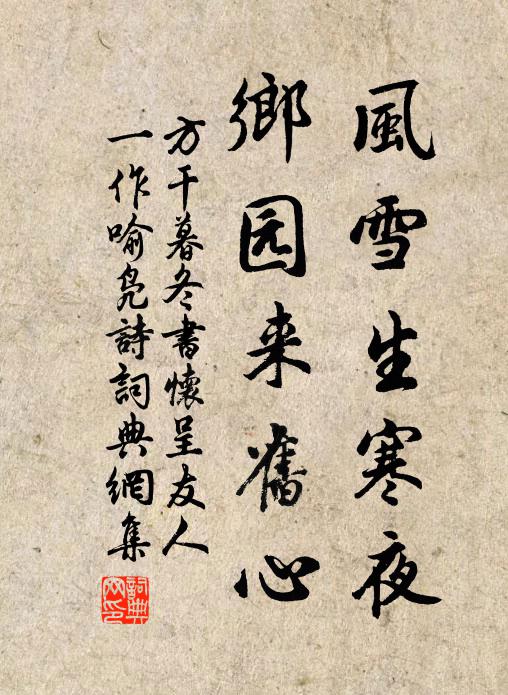 風雪生寒夜
鄉园来舊心
方干暮冬書懷呈友人
一作喻凫詩詞典網集
詞典
网印